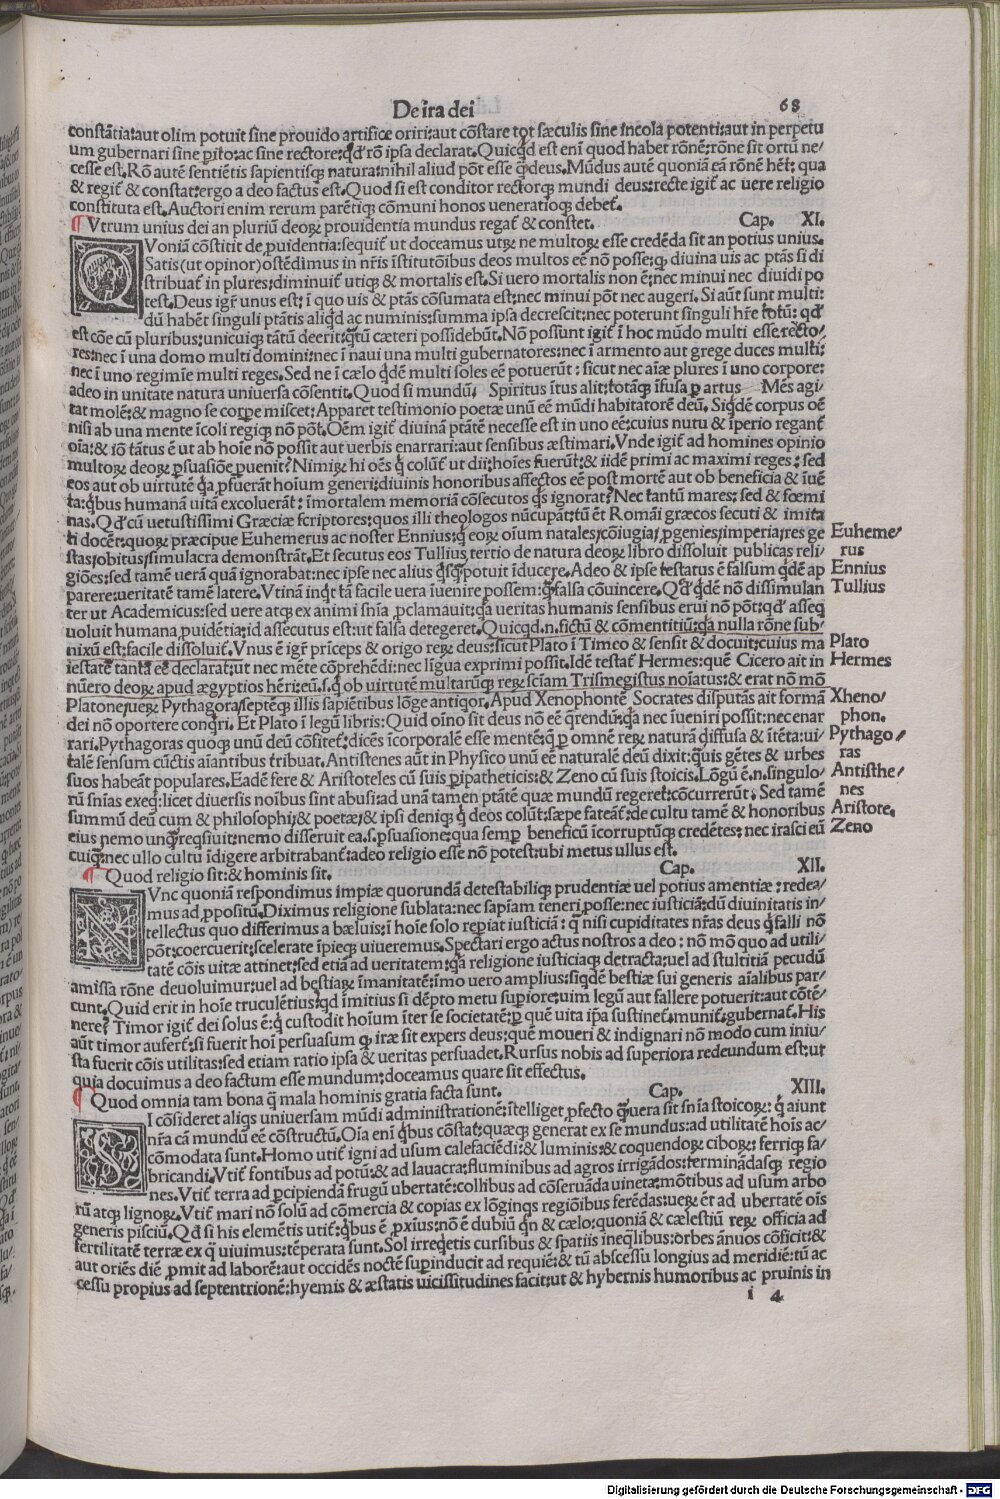 De ira dei 68
constãtia:aut olim potuit sine prouido artifice oriri:aut cõstare tot sæculis sine incola potenti:aut in perpetu
um gubernari sine pito:ac sine rectore:qđ rõ ipsa declarat.Quicqd est eni quod habet rõnē:rõne sit ortũ ne/
cesse est.Rõ autē sentiẽtis sapientisq; natura:nihil aliud põt esse q̃ deus.Mũdus autē quoniã eã rõnē hẽt: qua
& regit̃ & constat:ergo a deo factus est.Quod si est conditor rectorq; mundi deus:recte igit̃ ac uere religio
constituta est.Auctori enim rerum parẽtiq; cõmuni honos ueneratioq; debet̃.
¶ Vtrum unius dei an pluriũ deoꝝ prouidentia mundus regat̃ & constet. Cap. XI.
QVoniã cõstitit de ꝓuidentia:sequit̃ ut doceamus utꝝ ne multoꝝ esse credẽda sit an potius unius.
Satis(ut opinor)ostẽdimus in nr̃is ĩstitutõibus deos multos eē nõ posse:q; diuina uis ac ptãs si di
stribuat̃ in plures:diminuit̃ utiq; & mortalis est.Si uero mortalis non ē:nec minui nec diuidi po
test.Deus igr̃ unus est: ĩ quo uis & ptãs cõsumata est:nec minui põt nec augeri.Si aũt sunt multi:
dũ habẽt singuli ptãtis aliqd ac numinis:summa ipsa decrescit:nec poterunt singuli hr̃e totũ: qđ
est cõe cũ pluribus:unicuiq; tãtũ deerit:q̃tũ cæteri possidebũt.Nõ possunt igit̃ ĩ hoc mũdo multi esse recto/
res:nec ĩ una domo multi domini:nec ĩ naui una multi gubernatores:nec ĩ armento aut grege duces multi:
nec ĩ uno regimĩe multi reges.Sed ne ĩ cælo qdē multi soles eē potuerũt : sicut nec aĩæ plures ĩ uno corpore:
adeo in unitate natura uniuersa cõsentit.Quod si mundũ. Spiritus ĩtus alit:totãq; ĩfusa ꝑ artus Mẽs agi/
tat molē:& magno se corpe miscet:Apparet testimonio poetæ unũ eē mũdi habitatorē deũ.Siqdē corpus oē
nisi ab una mente ĩcoli regiq; nõ põt.Oēm igit̃ diuinã ptãtē necesse est in uno eē:cuius nutu & ĩperio regant̃
oĩa:& iõ tãtus ē ut ab hoĩe nõ possit aut uerbis enarrari:aut sensibus æstimari.Vnde igit̃ ad homines opinio
multoꝝ deoꝝ ꝑsuasiõe ꝑuenit?Nimiꝝ hi oẽs q̃ colũt̃ ut dii:hoĩes fuerũt:& iidē primi ac maximi reges : sed
eos aut ob uirtutē qa ꝓfuerãt hoĩum generi:diuinis honoribus affectos eē post mortē aut ob beneficia & ĩuē
ta:qbus humanã uitã excoluerãt : ĩmortalem memoriã cõsecutos qs ignorat?Nec tantũ mares: sed & fœmi
nas.Qđ cũ uetustissimi Græciæ scriptores:quos illi theologos nũcupãt:tũ ẽt Romãi græcos secuti & imita
ti docẽt:quoꝝ præcipue Euhemerus ac noster Ennius:q eoꝝ oĩum natales/cõiugia/ꝓgenies/imperia/res ge
stas/obitus/simulacra demonstrãt.Et secutus eos Tullius tertio de natura deoꝝ libro dissoluit publicas reli/
giões:sed tamē uerã quã ignorabat:nec ipse nec alius qsq potuit ĩducere.Adeo & ipse testatus ē falsum qdē ap
parere:ueritatē tamē latere.Vtinã inqt tã facile uera ĩuenire possem:q̃ falsa cõuincere.Qđ qdē nõ dissimulan
ter ut Academicus:sed uere atq; ex animi sñia ꝓclamauit:qa ueritas humanis sensibus erui nõ põt:qđ asseq
uoluit humana ꝓuidẽtia:id assecutus est:ut falsa detegeret.Quicqd.n.fictũ & cõmentitiũ:qa nulla rõne sub/
nixũ est:facile dissoluit̃.Vnus ē igr̃ prĩceps & origo reꝝ deus:sicut Plato ĩ Timeo & sensit & docuit:cuius ma
iestatē tantã eē declarat:ut nec mẽte cõprehẽdi:nec lĩgua exprimi possit.Idē testat̃ Hermes:quē Cicero ait in
nũero deoꝝ apud ægyptios hẽri:eũ.s.q ob uirtutē multarũq; reꝝ sciam Trismegistus noĩatus:& erat nõ mõ
Platone/ueꝝ Pythagora/septẽq; illis sapiẽtibus lõge antiqor.Apud Xenophontē Socrates disputãs ait formã
dei nõ oportere conqri. Et Plato ĩ legũ libris:Quid oĩno sit deus nõ eē q̃rendũ:qa nec ĩueniri possit:nec enar
rari.Pythagoras quoq; unũ deũ cõfitet̃:dicẽs ĩcorporalē esse mentē:q ꝑ omnē reꝝ naturã diffusa & ĩtẽta:ui/
talē sensum cũctis aĩantibus tribuat.Antistenes aũt in Physico unũ eē naturalē deũ dixit:q̃uis gẽtes & urbes
suos habeãt populares.Eadē fere & Aristoteles cũ suis ꝑipatheticis:& Zeno cũ suis stoicis.Lõgũ ē.n.singulo/
rũ sñias exeq:licet diuersis noĩbus sint abusi:ad unã tamen ptãtē quæ mundũ regeret:cõcurrerũt. Sed tamē
summũ deũ cum & philosophi/& poetæ/& ipsi deniq; q deos colũt:sæpe fateãt̃:de cultu tamē & honoribus
eius nemo unq reqsiuit:nemo disseruit ea.s.ꝑsuasione:qua semꝑ beneficũ ĩcorruptũq; credẽtes: nec irasci eũ
cuiq:nec ullo cultu ĩdigere arbitrabant̃:adeo religio esse nõ potest:ubi metus ullus est.
¶ Quod religio sit:& hominis sit. Cap. XII.
NVnc quoniã respondimus impiæ quorundã detestabiliq; prudentiæ uel potius amentiæ : redea/
mus ad ꝓpositũ.Diximus religione sublata:nec sapĩam teneri posse:nec iusticiã:dũ diuinitatis in/
tellectus quo differimus a bæluis:ĩ hoĩe solo reꝑiat iusticiã: q nisi cupiditates nr̃as deus q falli nõ
põt:coercuerit:scelerate ĩpieq; uiueremus.Spectari ergo actus nostros a deo : nõ mõ quo ad utili/
tatē cõis uitæ attinet:sed etiã ad ueritatem:qa religione iusticiaq; detracta:uel ad stultitiã pecudũ
amissa rõne deuoluimur:uel ad bestiaꝝ ĩmanitatē:ĩmo uero amplius:siqdē bestiæ sui generis aĩalibus par/
cunt.Quid erit in hoĩe truculẽtius:qd ĩmitius si dẽpto metu supiore:uim legũ aut fallere potuerit:aut cõtẽ/
nere? Timor igit̃ dei solus ē:q custodit hoĩum ĩter se societatē:ꝑ quē uita ip̃a sustinet̃:munit̃:gubernat̃.His
aũt timor aufert̃:si fuerit hoĩ persuasum q; iræ sit expers deus:quē moueri & indignari nõ modo cum iniu/
sta fuerit cõis utilitas:sed etiam ratio ipsa & ueritas persuadet.Rursus nobis ad superiora redeundum est:ut
quia docuimus a deo factum esse mundum:doceamus quare sit effectus.
¶ Quod omnia tam bona q̃ mala hominis gratia facta sunt. Cap. XIII.
SI cõsideret aliqs uniuersam mũdi administrationē:ĩtelliget ꝓfecto q̃ uera sit sñia stoicoꝝ: q aiunt
nr̃a cã mundũ eē cõstructũ.Oĩa eni qbus cõstat:quæq; generat ex se mundus:ad utilitatē hoĩs ac/
cõmodata sunt.Homo utit̃ igni ad usum calefaciẽdi:& luminis:& coquendoꝝ ciboꝝ: ferriq; fa/
bricandi.Vtit̃ fontibus ad potũ:& ad lauacra:fluminibus ad agros irrigãdos:terminãdasq; regio
nes.Vtit̃ terra ad ꝑcipiendã frugũ ubertatē:collibus ad cõseruãda uineta:mõtibus ad usum arbo
rũ atq; lignoꝝ.Vtit̃ mari nõ solũ ad cõmercia & copias ex lõginqs regiõibus ferẽdas:ueꝝ ẽt ad ubertatē oĩs
generis pisciũ.Qđ si his elemẽtis utit̃:qbus ē ꝓxius:nõ ē dubiũ qn & cælo:quoniã & cælestiũ reꝝ officia ad
fertilitatē terræ ex q uiuimus:tẽperata sunt.Sol irreqetis cursibus & spatiis ineqlibus:orbes ãnuos cõficit:&
aut oriẽs diē ꝓmit ad laborē:aut occidẽs noctē supinducit ad requiē:& tũ abscessu longius ad meridiē:tũ ac
cessu propius ad septentrionē:hyemis & æstatis uicissitudines facit:ut & hybernis humoribus ac pruinis in
i 4
Euheme/
rus
Ennius
Tullius
Plato
Hermes
Xheno/
phon.
Pythago/
ras
Antisthe/
nes
Aristote.
Zeno
Digitalisierung gefördert durch die Deutsche Forschungsgemeinschaft - DFG